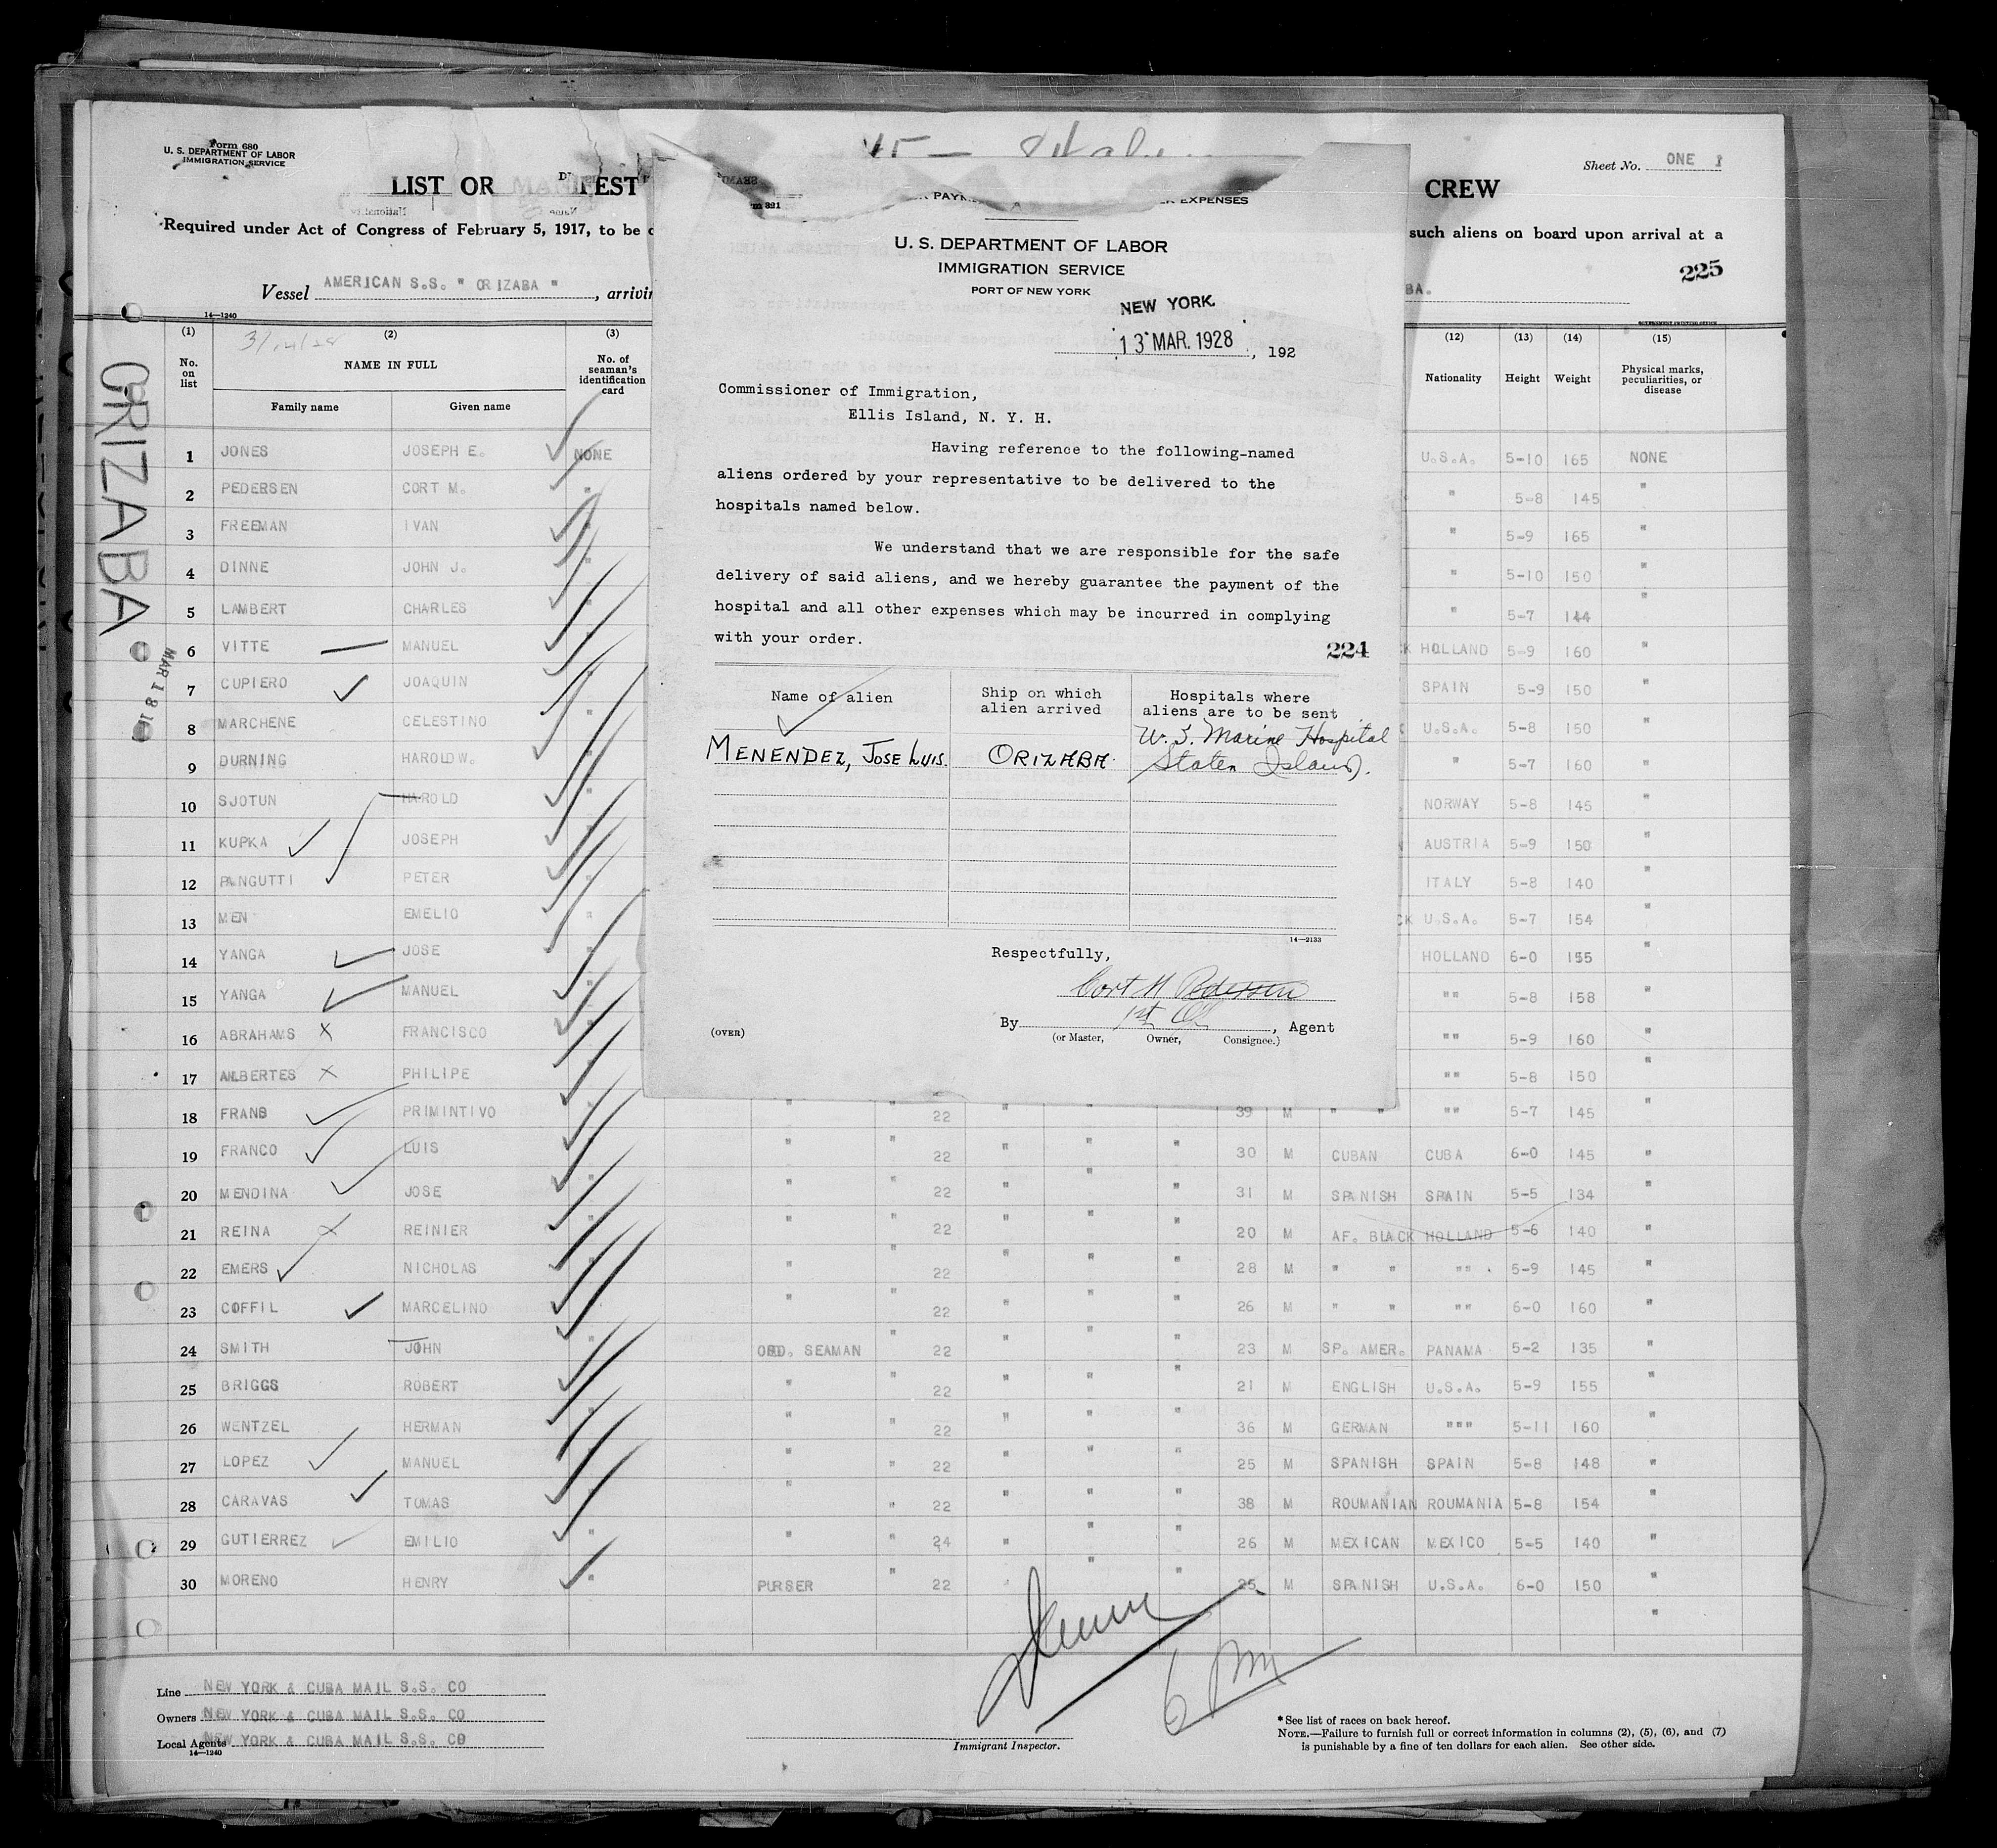 Form 680
U. S. DEPARTMENT OF LABOR
IMMIGRATION SERVICE
Sheet No. ONE 1
LIST OR MANIFEST
CREW
Required under Act of Congress of February 5, 1917, to be
such aliens on board upon arrival at a
225
Vessel AMERICAN S.S. " ORIZABA " , arrivin
BA.
14—1240
GOVERNMENT PRINTING OFFICE
ORIZABA
(1) (2) (3) (12) (13) (14) (15)
No. on list
NAME IN FULL
Family name Given name
No. of seaman's identification card
Nationality Height Weight Physical marks, peculiarities, or disease
1 JONES JOSEPH E. NONE U.S.A. 5-10 165 NONE
2 PEDERSEN CORT M. " " 5-8 145 "
3 FREEMAN IVAN " " 5-9 165 "
4 DINNE JOHN J. " " 5-10 150 "
5 LAMBERT CHARLES " " 5-7 144 "
6 VITTE MANUEL " HOLLAND 5-9 160 "
7 CUPIERO JOAQUIN " SPAIN 5-9 150 "
8 MARCHENE CELESTINO " U.S.A. 5-8 150 "
9 DURNING HAROLD W. " " 5-7 160 "
10 SJOTUN HAROLD " NORWAY 5-8 145 "
11 KUPKA JOSEPH " AUSTRIA 5-9 150 "
12 PANGUTTI PETER " ITALY 5-8 140 "
13 MEN EMELIO " U.S.A. 5-7 154 "
14 YANGA JOSE " HOLLAND 6-0 155 "
15 YANGA MANUEL " "" 5-8 158 "
16 ABRAHAMS X FRANCISCO " "" 5-9 160 "
17 ALBERTES X PHILIPE " "" 5-8 150 "
18 FRANS PRIMINTIVO " " " 22 " " " 39 M " " "" 5-7 145 "
19 FRANCO LUIS " " " 22 " " " 30 M CUBAN CUBA 6-0 145 "
20 MENDINA JOSE " " " 22 " " 31 M SPANISH SPAIN 5-5 134 "
21 REINA REINIER " " " 22 " " " 20 M AF. BLACK HOLLAND 5-6 140 "
22 EMERS NICHOLAS " " " 22 " " " 28 M " " "" 5-9 145 "
23 COFFIL MARCELINO " " " 22 " " " 26 M " " "" 6-0 160 "
24 SMITH JOHN " ORD. SEAMAN " 22 " " " 23 M SP. AMER. PANAMA 5-2 135 "
25 BRIGGS ROBERT " " " 22 " " " 21 M ENGLISH U.S.A. 5-9 155 "
26 WENTZEL HERMAN " " " 22 " " " 36 M GERMAN """ 5-11 160 "
27 LOPEZ MANUEL " " " 22 " " " 25 M SPANISH SPAIN 5-8 148 "
28 CARAVAS TOMAS " " " 22 " " " 38 M ROUMANIAN ROUMANIA 5-8 154 "
29 GUTIERREZ EMILIO " " " 24 " " " 26 M MEXICAN MEXICO 5-5 140 "
30 MORENO HENRY " PURSER " 22 " " " 25 M SPANISH U.S.A. 6-0 150 "
Line NEW YORK & CUBA MAIL S.S. CO
Owners NEW YORK & CUBA MAIL S.S. CO
Local Agents NEW YORK & CUBA MAIL S.S. CO
14—1240
6 PM
Immigrant Inspector.
*See list of races on back hereof.
NOTE.—Failure to furnish full or correct information in columns (2), (5), (6), and (7)
is punishable by a fine of ten dollars for each alien. See other side.
EXPENSES
U. S. DEPARTMENT OF LABOR
IMMIGRATION SERVICE
PORT OF NEW YORK
NEW YORK
13 MAR. 1928 , 192
Commissioner of Immigration,
Ellis Island, N. Y. H.
Having reference to the following-named
aliens ordered by your representative to be delivered to the
hospitals named below.
We understand that we are responsible for the safe
delivery of said aliens, and we hereby guarantee the payment of the
hospital and all other expenses which may be incurred in complying
with your order.
224
Name of alien Ship on which alien arrived Hospitals where aliens are to be sent
MENENDEZ, JOSE LUIS. ORIZABA. U. S. Marine Hospital
Staten Island).
14—2133
Respectfully,
Cort M Pedersen
By 1st Of , Agent
(or Master, Owner, Consignee.)
(OVER)